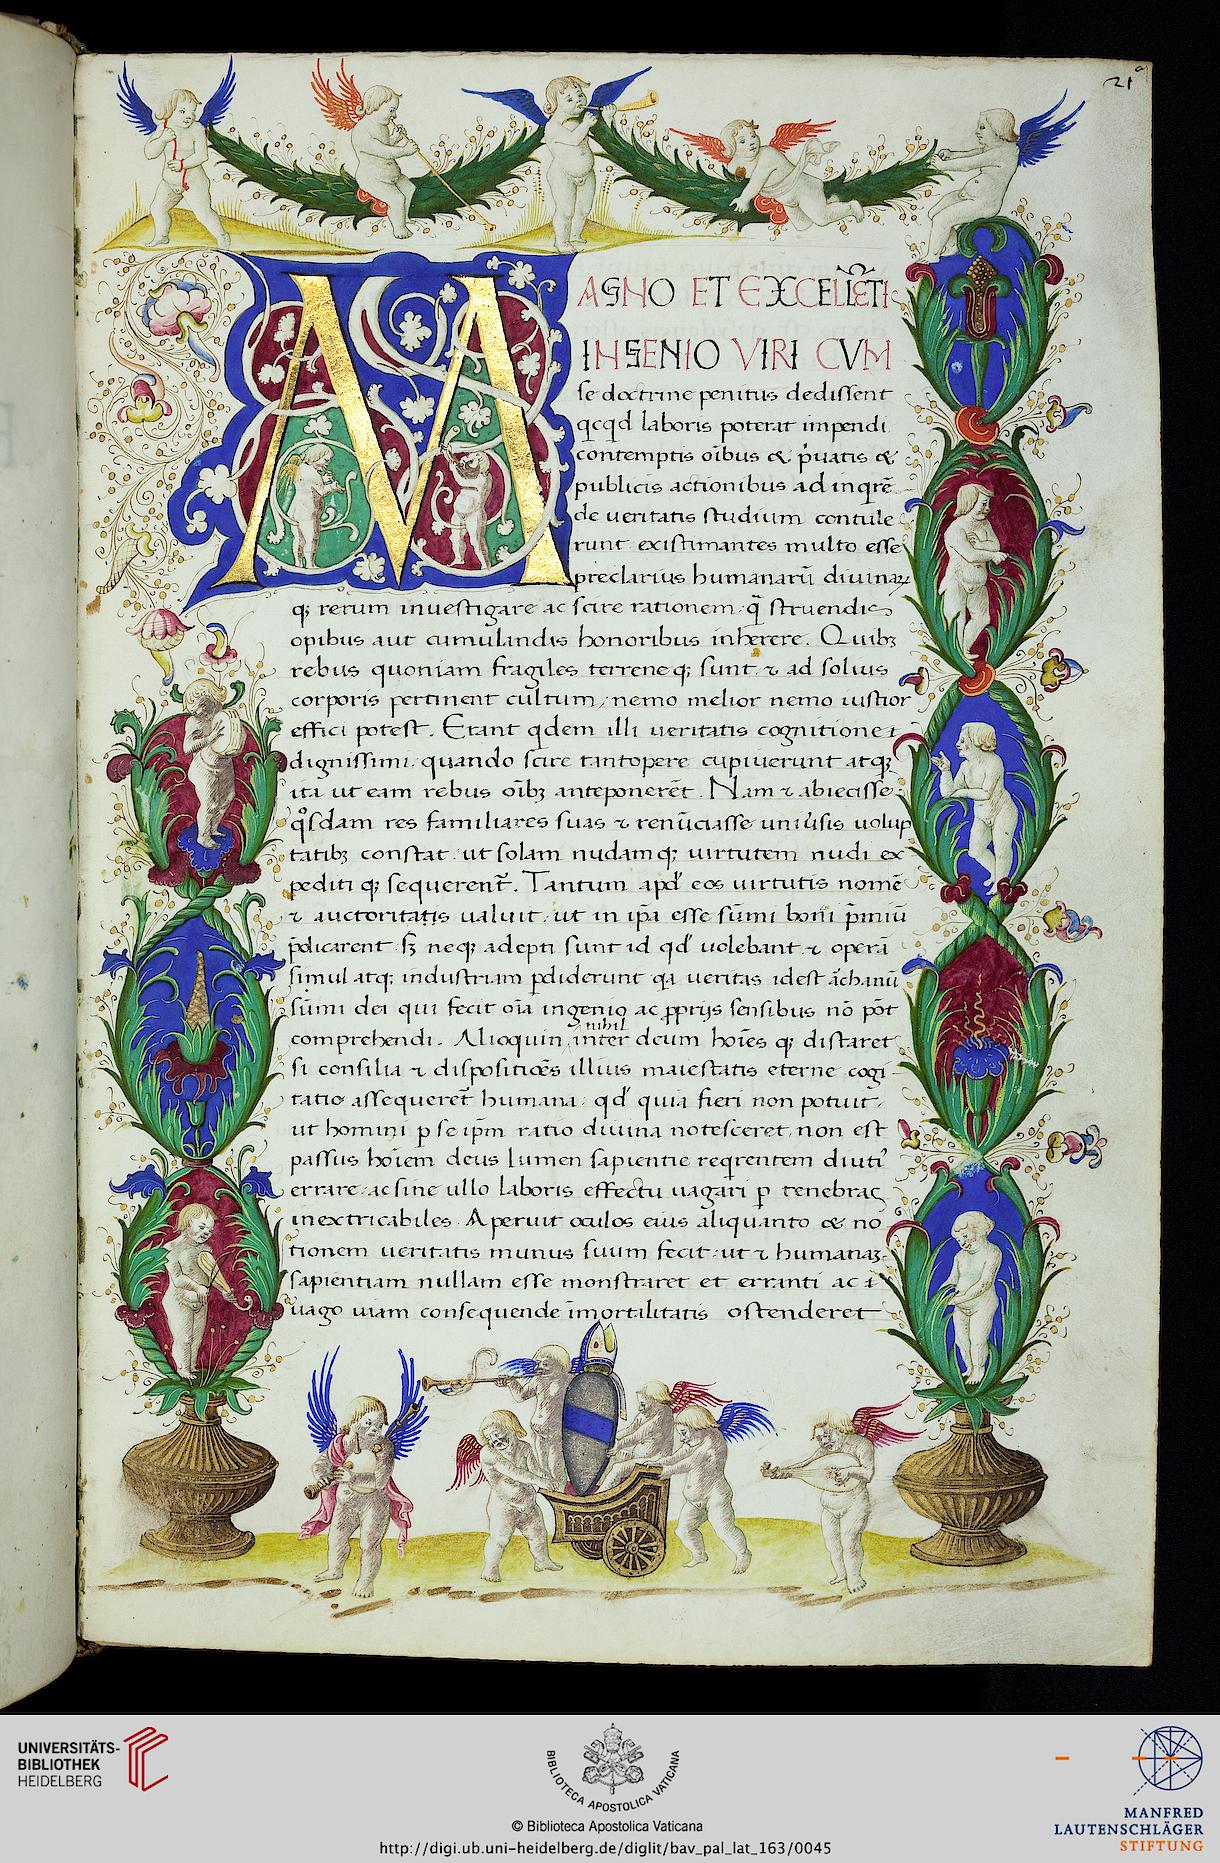 21
MAGNO ET EXCELLẼTI
INGENIO VIRI CVM
se doctrine penitus dedissent
qcqd laboris poterat impendi
contemptis oĩbus & p̾uatis &
publicis actionibus ad inqrẽ
de veritatis studium contule
runt existimantes multo esse
preclarius humanarũ diuinaꝝ
qꝫ rerum inuestigare ac scire rationem q̃ struendis
opibus aut cumulandis honoribus inherere. Quibꝫ
rebus quoniam fragiles terreneqꝫ sunt ⁊ ad solius
corporis pertinent cultum nemo melior nemo iustior
effici potest. Erant qdem illi ueritatis cognitione
dignissimi quando scire tantopere cupiuerunt atqꝫ
ita ut eam rebus oĩbꝫ anteponerẽt. Nam ⁊ abiecisse
qͦsdam res familiares suas ⁊ renũciasse uniũsis uolup
tatibꝫ constat ut solam nudamqꝫ uirtutem nudi ex
peditiqꝫ sequerent̃. Tantum apd̾ eos uirtutis nomẽ
⁊ auctoritatis ualuit ut in ip̃a esse sũmi boni p̃miũ
p̃dicarent sꝫ neqꝫ adepti sunt id qd̾ uolebant ⁊ operã
simul atqꝫ industriam ꝑdiderunt qa ueritas idest archanũ
sũmi dei qui fecit oĩa ingenio ac ꝓprijs sensibus nõ põt
comprehendi. Alioquin nihil inter deum hoĩesqꝫ distaret
si consilia ⁊ dispositiões illius maiestatis eterne cogi
tatio assequeret̃ humana qd̾ quia fieri non potuit
ut homini ꝑ se ip̃m ratio diuina notesceret non est
passus hoĩem deus lumen sapientie reqrentem diuti᾽
errare ac sine ullo laboris effectu uagari ꝑ tenebras
inextricabiles. Aperuit oculos eius aliquanto & no
tionem ueritatis munus suum fecit ut ⁊ humanaꝫ
sapientiam nullam esse monstraret et erranti ac
uago uiam consequende ĩmortilitatis ostenderet
UNIVERSITÄTS-
BIBLIOTHEK
HEIDELBERG
BIBLIOTECA APOSTOLICA VATICANA
© Biblioteca Apostolica Vaticana
http://digi.ub.uni-heidelberg.de/diglit/bav_pal_lat_163/0045
MANFRED
LAUTENSCHLÄGER
STIFTUNG